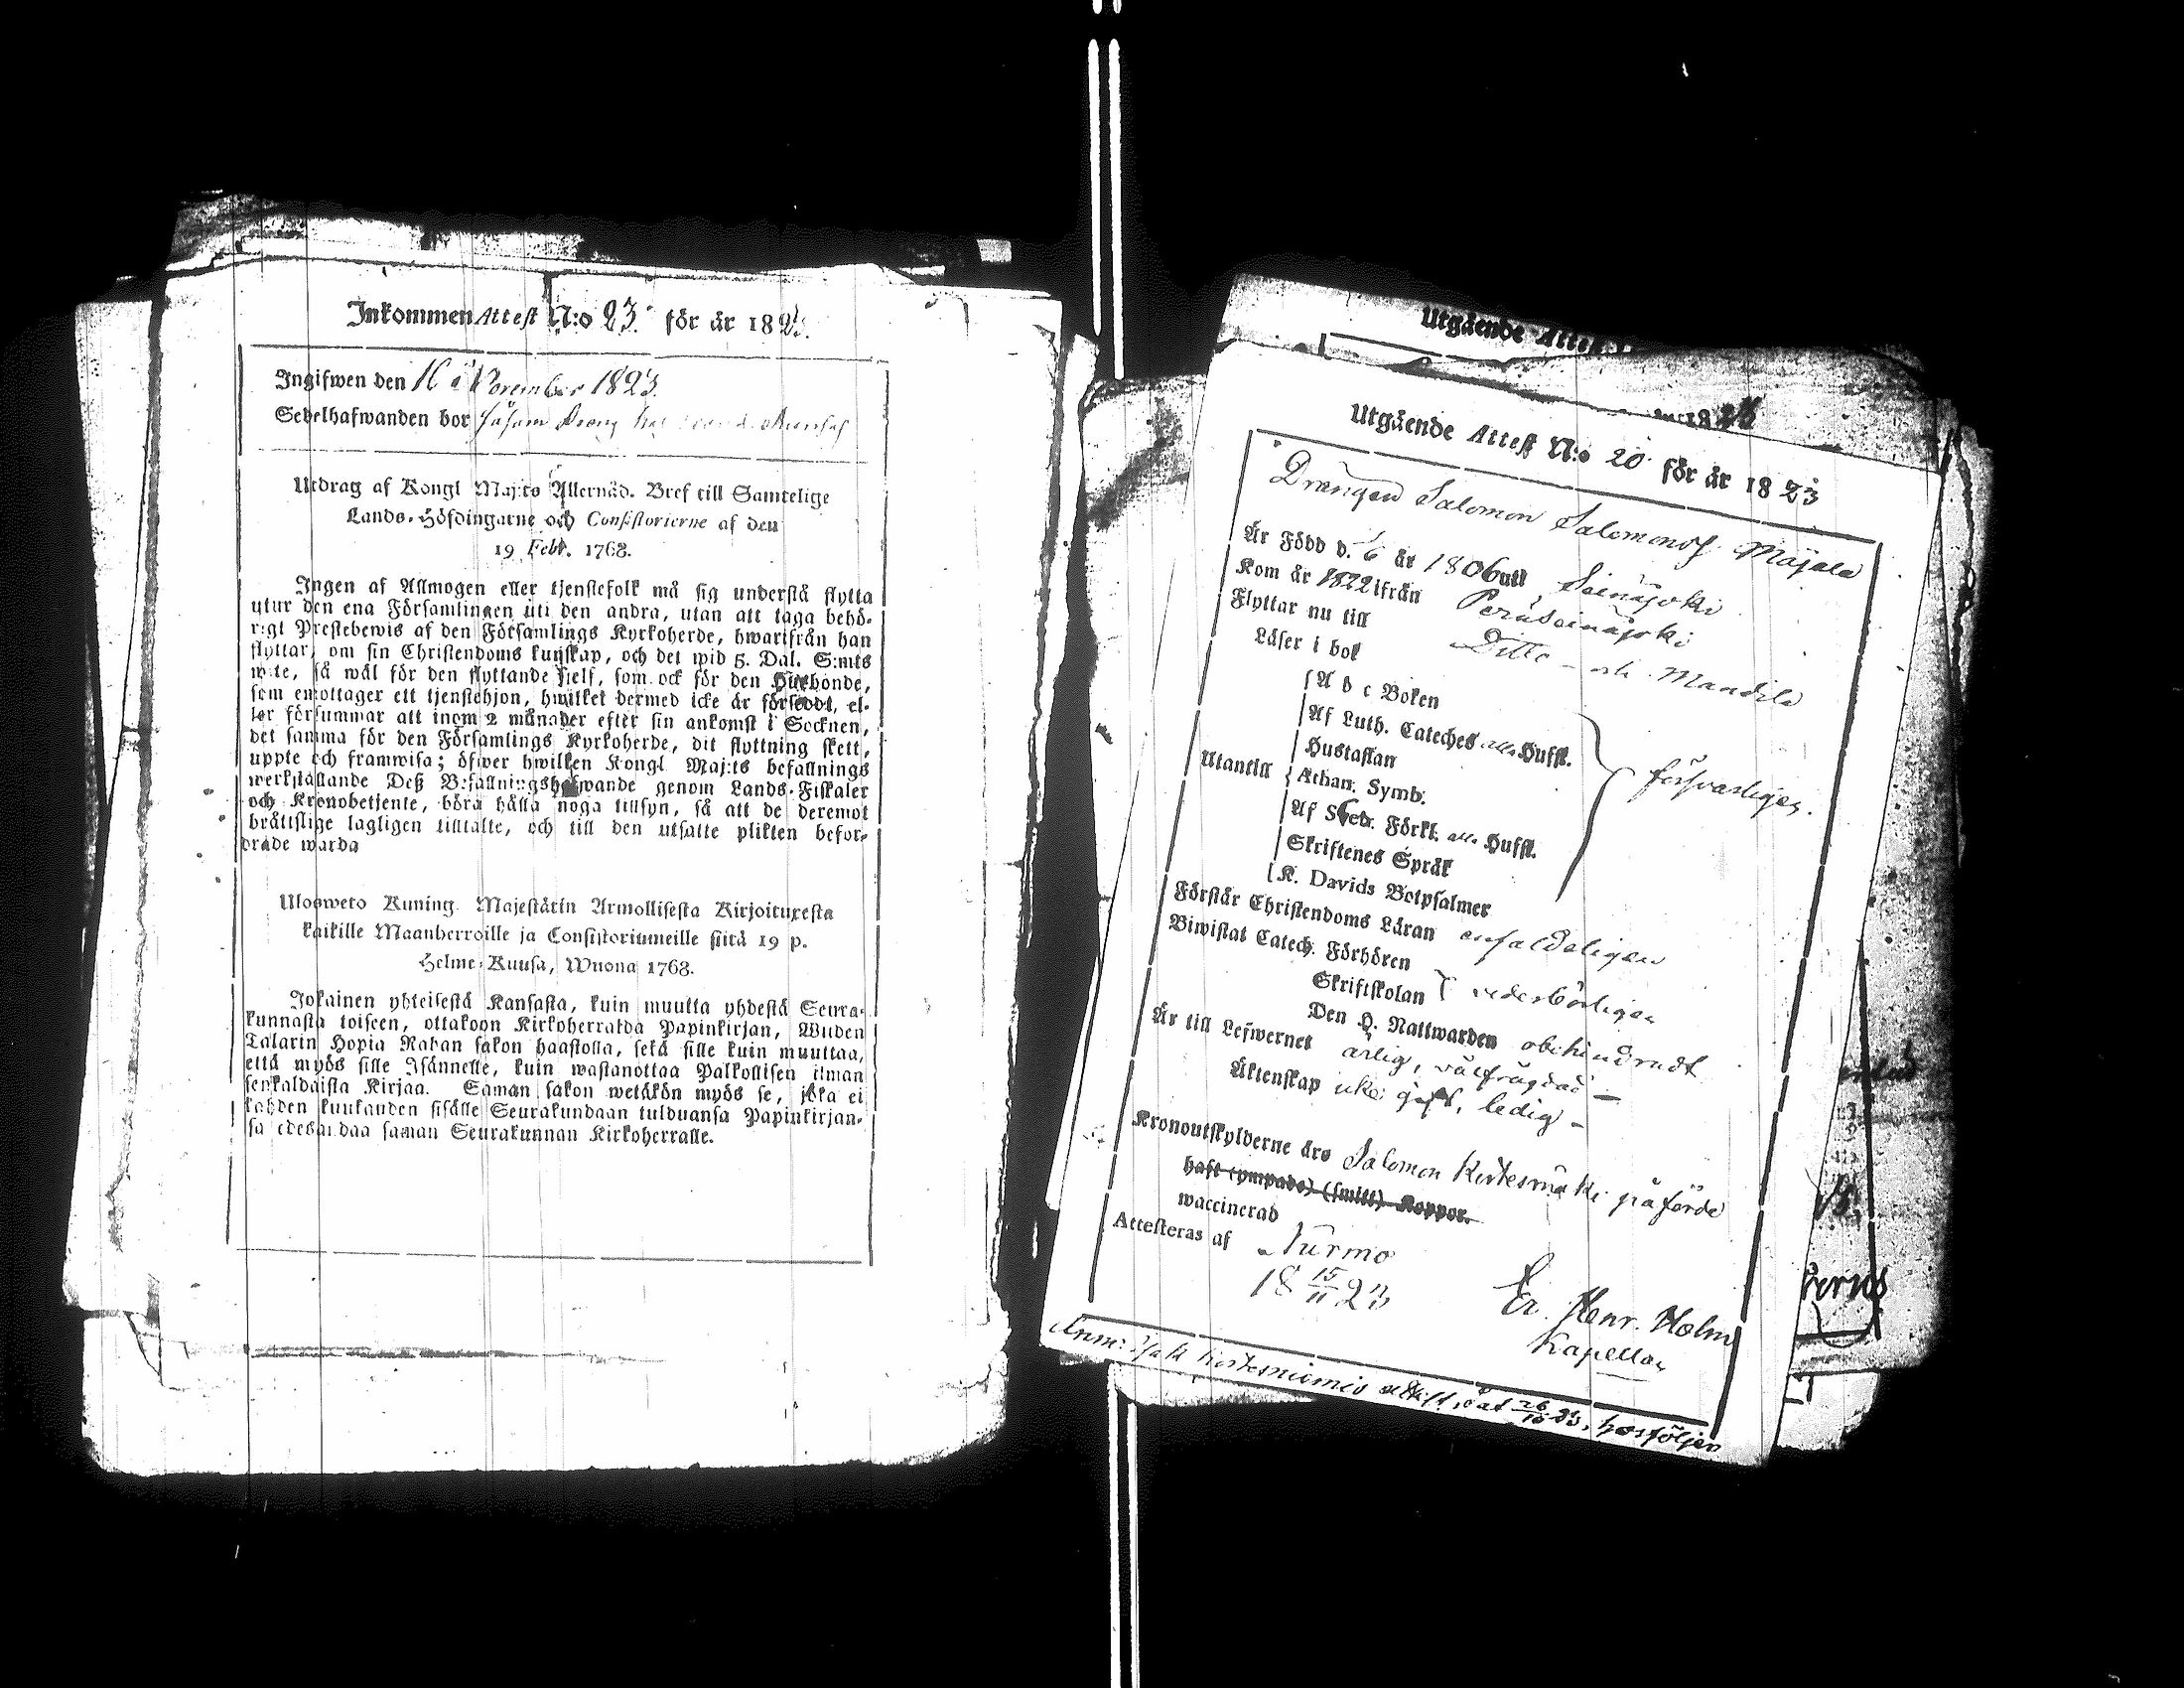 Inkommen Attest N:o 23. för år 1823.
Ingifwen den 16 November 1823.
Sedelhafwanden bor såsom Dreng
Utdrag af Kongl Maj:ts Allernåd. Bref till Samtelige
Lands-Höfdingarne och Consistorierne af den
19 Febr. 1768.
Ingen af Allmogen eller tjenstefolk må sig understå flytta
utur den ena Församlingen uti den andra, utan att taga behö-
rigt Prestebewis af den Församlings Kyrkoherde, hwarifrån han
flyttar, om sin Christendoms kunskap, och det wid 5. Dal. S:mts
wite, så wäl för den flyttande sielf, som ock för den Husbonde,
som emottager ett tjenstehjon, hwilket dermed icke är försedt, el-
ler försummar att inom 2 månader efter sin ankomst i Socknen,
det samma för den Församlings Kyrkoherde, dit flyttning skett,
uppte och framwisa; öfwer hwilken Kongl Maj:ts befallnings
werkställande Deß Befallningshafwande genom Lands-Fiskaler
och Kronobetjente, böra hålla noga tillsyn, så att de deremot
bråttslige lagligen tilltalte, och till den utsatte plikten befor-
drade warda
Ulosweto Kuning. Majestätin Armollisesta Kirjoituxesta
kaikille Maanherroille ja Consistoriumeille siitä 19 p.
Helme-Kuusa, Wuona 1768.
Jokainen yhteisestä Kansasta, kuin muutta yhdestä Seura-
kunnasta toiseen, ottakoon Kirkoherralda Papinkirjan, Wiiden
Talarin Hopia Rahan sakon haastolla, sekä sille kuin muuttaa,
että myös sille Isännelle, kuin wastanottaa Palkollisen ilman
senkaldaista Kirjaa. Saman sakon wetäkön myös se, joka ei
kahden kuukauden sisälle Seurakundaan tulduansa Papinkirjan-
sa edesandaa saman Seurakunnan Kirkoherralle.
Utgående Attest
18 23
Utgående Attest N:o 20 för år 18 23
Drängen Salomon Salomons. Majala
Är Född d. 6 år 1806 uti Seinäjoki
Kom år 1822 ifrån Peräseinäjoki
Flyttar nu till Ditto
Läser i bok
Utantill
A b c Boken
Af Luth. Cateches alla Hufst.
Hustaflan
Athan: Symb:
Af Sveb. Förkl. alla Hufst.
Skriftenes Språk
K. Davids Botpsalmer
försvarligen.
Förstår Christendoms Läran enfaldeligen
Biwistat Catech. Förhören
Skriftskolan vederbörligen
Den H. Nattwarden obehindradt
Är till Lefwernet ärlig, välfrägdad -
Äktenskap icke gift, ledig -
Kronoutskylderne äro Salomon påförde
haft (ympade) (smitt) Koppor.
waccinerad
Attesteras af Nurmo
18 15/11 23
Er. Henr. Holm
Kapellan
Anm: 26/10 23, hosföljer